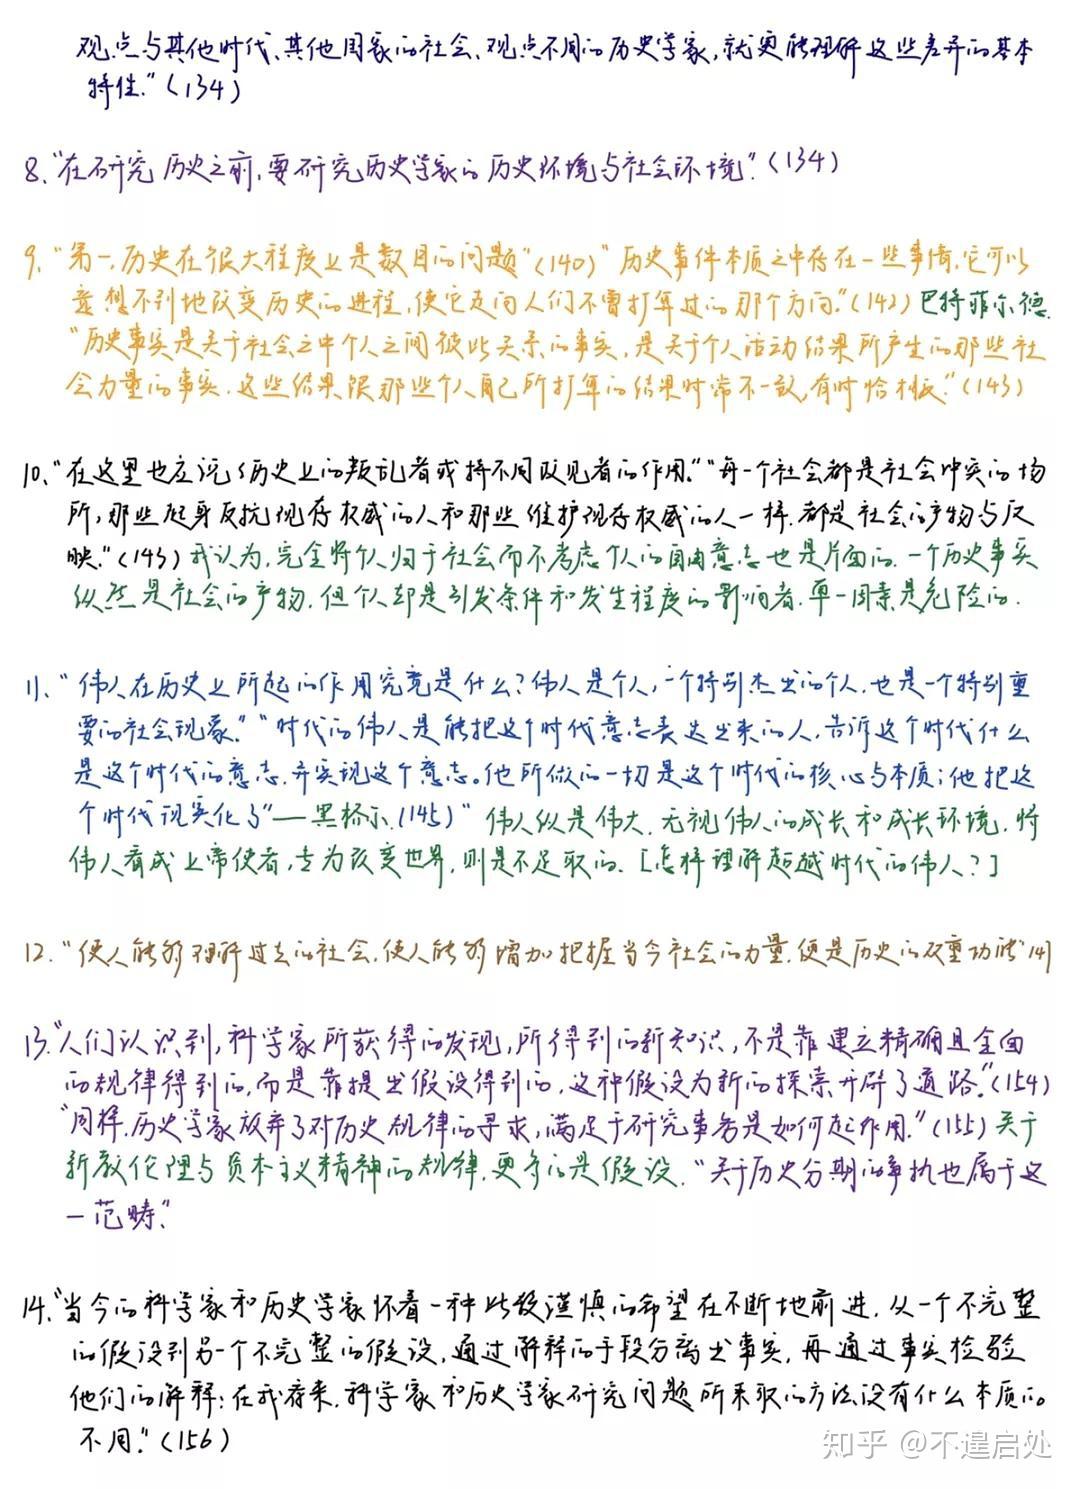 观点与其他时代、其他国家的社会、观点不同的历史学家,就更能理解这些差异的基本
特性."(134)
8、"在研究历史之前,要研究历史学家的历史环境与社会环境".(134)
9、"第一,历史在很大程度上是数目的问题"(140)"历史事件本质之中存在一些事情,它可以
意想不到地改变历史的进程,使它走向人们不曾打算过的那个方向."(142)巴特菲尔德.
"历史事实是关于社会之中个人之间彼此关系的事实,是关于个人活动结果所产生的那些社
会力量的事实.这些结果跟那些个人自己所打算的结果时常不一致,有时恰相反."(143)
10、"在这里也应说说历史上的叛乱者或持不同政见者的作用.""每一个社会都是社会冲突的场
所,那些起身反抗现存权威的人和那些维护现存权威的人一样.都是社会的产物与反
映."(143)我认为,完全将个人归于社会而不考虑个人的自由意志也是片面的.一个历史事实
纵然是社会的产物.但个人却是引发条件和发生程度的影响者.单一因素是危险的.
11、"伟人在历史上所起的作用究竟是什么?伟人是个人,一个特别杰出的个人.也是一个特别重
要的社会现象.""时代的伟人是能把这个时代意志表达出来的人,告诉这个时代什么
是这个时代的意志.并实现这个意志。他所做的一切是这个时代的核心与本质;他把这
个时代现实化了"——黑格尔.(145)"伟人纵是伟大.无视伟人的成长和成长环境.将
伟人看成上帝使者,专为改变世界,则是不足取的.[怎样理解超越时代的伟人?]
12."使人能够理解过去的社会.使人能够增加把握当今社会的力量.便是历史的双重功能"141
13."人们认识到,科学家所获得的发现,所得到的新知识,不是靠建立精确且全面
的规律得到的.而是靠提出假设得到的.这种假设为新的探索开辟了道路."(154)
"同样.历史学家放弃了对历史规律的寻求,满足于研究事务是如何起作用."(155)关于
新教伦理与资本主义精神的规律.更多的是假设."关于历史分期的争执也属于这
一范畴."
14."当今的科学家和历史学家怀着一种比较谨慎的希望在不断地前进.从一个不完整
的假设到另一个不完整的假设,通过解释的手段分离出事实,再通过事实检验
他们的解释;在我看来.科学家和历史学家研究问题所采取的方法没有什么本质的
不同."(156)
知乎 @不遑启处